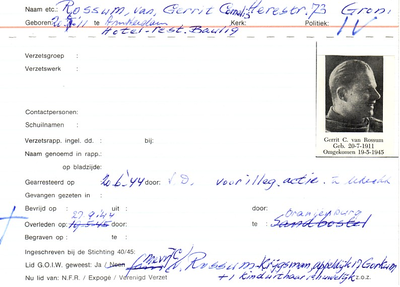 Naam etc.: Rossum, van, Gerrit Cornelis Herestr. 73 Gron.
Geboren: 20-7-11 te Amsterdam Kerk: Politiek: IV
Hotel-rest. Baulig
Verzetsgroep :
Verzetswerk :
Contactpersonen:
Schuilnamen :
Verzetsrapp. ingel. dd. : bij:
Naam genoemd in rapp.:
op bladzijde:
Gearresteerd op 20.6.'44 door: S.D. voor illeg. actie. te
Gevangen gezeten in :
Bevrijd op : uit : door : Oranjenburg
27.9.44
Overleden op : 19.5.45 te : Sandbostel
Begraven op : te :
Ingeschreven bij de Stichting 40/45:
Lid G.O.I.W. geweest: Ja / Neen mevr. v. Rossum-Krijgsman, Gorkum
+ 1 kind uit haar huwelijk z.o.z.
Nu lid van: N.F.R / Expogé / Verenigd Verzet
Gerrit C. van Rossum
Geb. 20-7-1911
Omgekomen 19-5-1945